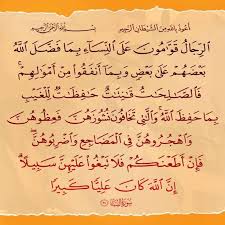 أعوذ بالله من الشيطان الرجيم بسم الله الرحمن الرحيم
ٱلرِّجَالُ قَوَّٰمُونَ عَلَى ٱلنِّسَآءِ بِمَا فَضَّلَ ٱللَّهُ
بَعۡضَهُمۡ عَلَىٰ بَعۡضٖ وَبِمَآ أَنفَقُواْ مِنۡ أَمۡوَٰلِهِمۡۚ
فَٱلصَّٰلِحَٰتُ قَٰنِتَٰتٌ حَٰفِظَٰتٞ لِّلۡغَيۡبِ
بِمَا حَفِظَ ٱللَّهُۚ وَٱلَّٰتِي تَخَافُونَ نُشُوزَهُنَّ فَعِظُوهُنَّ
وَٱهۡجُرُوهُنَّ فِي ٱلۡمَضَاجِعِ وَٱضۡرِبُوهُنَّۖ
فَإِنۡ أَطَعۡنَكُمۡ فَلَا تَبۡغُواْ عَلَيۡهِنَّ سَبِيلًاۗ
إِنَّ ٱللَّهَ كَانَ عَلِيّٗا كَبِيرٗا
سورة النساء